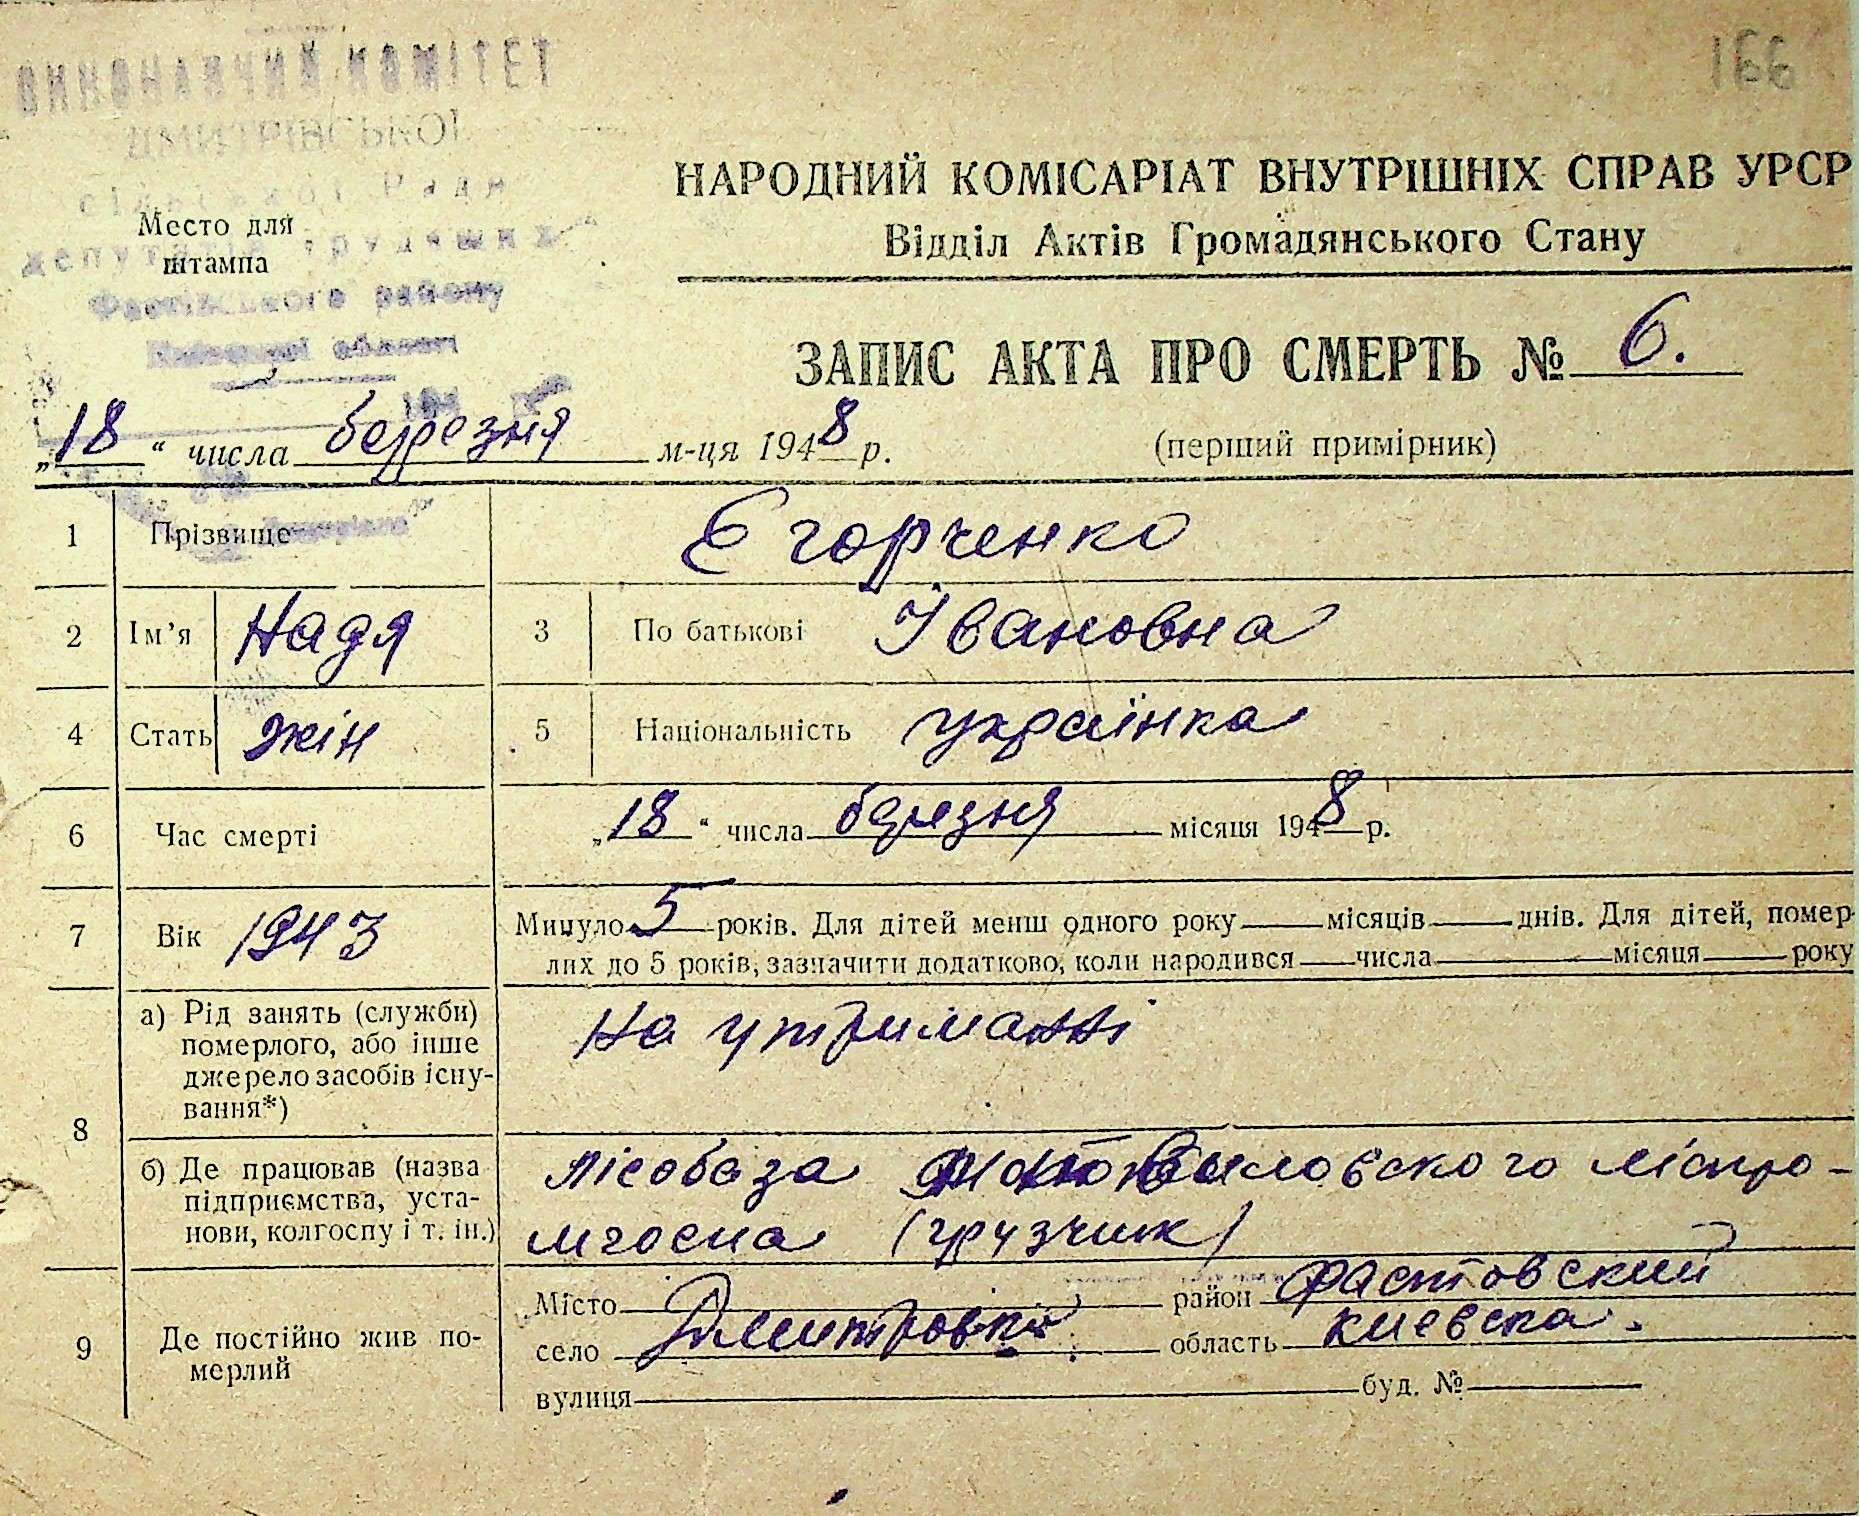 166
ВИКОНАВЧИЙ КОМІТЕТ
ДМИТРІВСЬКОЇ
сільської Ради
депутатів трудящих
Фастівського району
Київської області
194
Место для
штампа
НАРОДНИЙ КОМІСАРІАТ ВНУТРІШНІХ СПРАВ УРСР
Відділ Актів Громадянського Стану
ЗАПИС АКТА ПРО СМЕРТЬ № 6.
(перший примірник)
„18“ числа березня м-ця 1948 р.
1 Прізвище Єгорченко
2 Ім’я Надя 3 По батькові Івановна
4 Стать жін 5 Національність українка
6 Час смерті „18“ числа березня місяця 1948 р.
7 Вік 1943 Минуло 5 років. Для дітей менш одного року місяців днів. Для дітей, помер-
лих до 5 років, зазначити додатково, коли народився числа місяця року
8 а) Рід занять (служби)
померлого, або інше
джерело засобів існу-
вання*)
на утриманні
б) Де працював (назва
підприємства, уста-
нови, колгоспу і т. ін.)
лісобаза ліспро-
мгоспа (грузчик)
9 Де постійно жив по-
мерлий
Місто район Фастовский
село Дмитровка область киевска.
вулиця буд. №